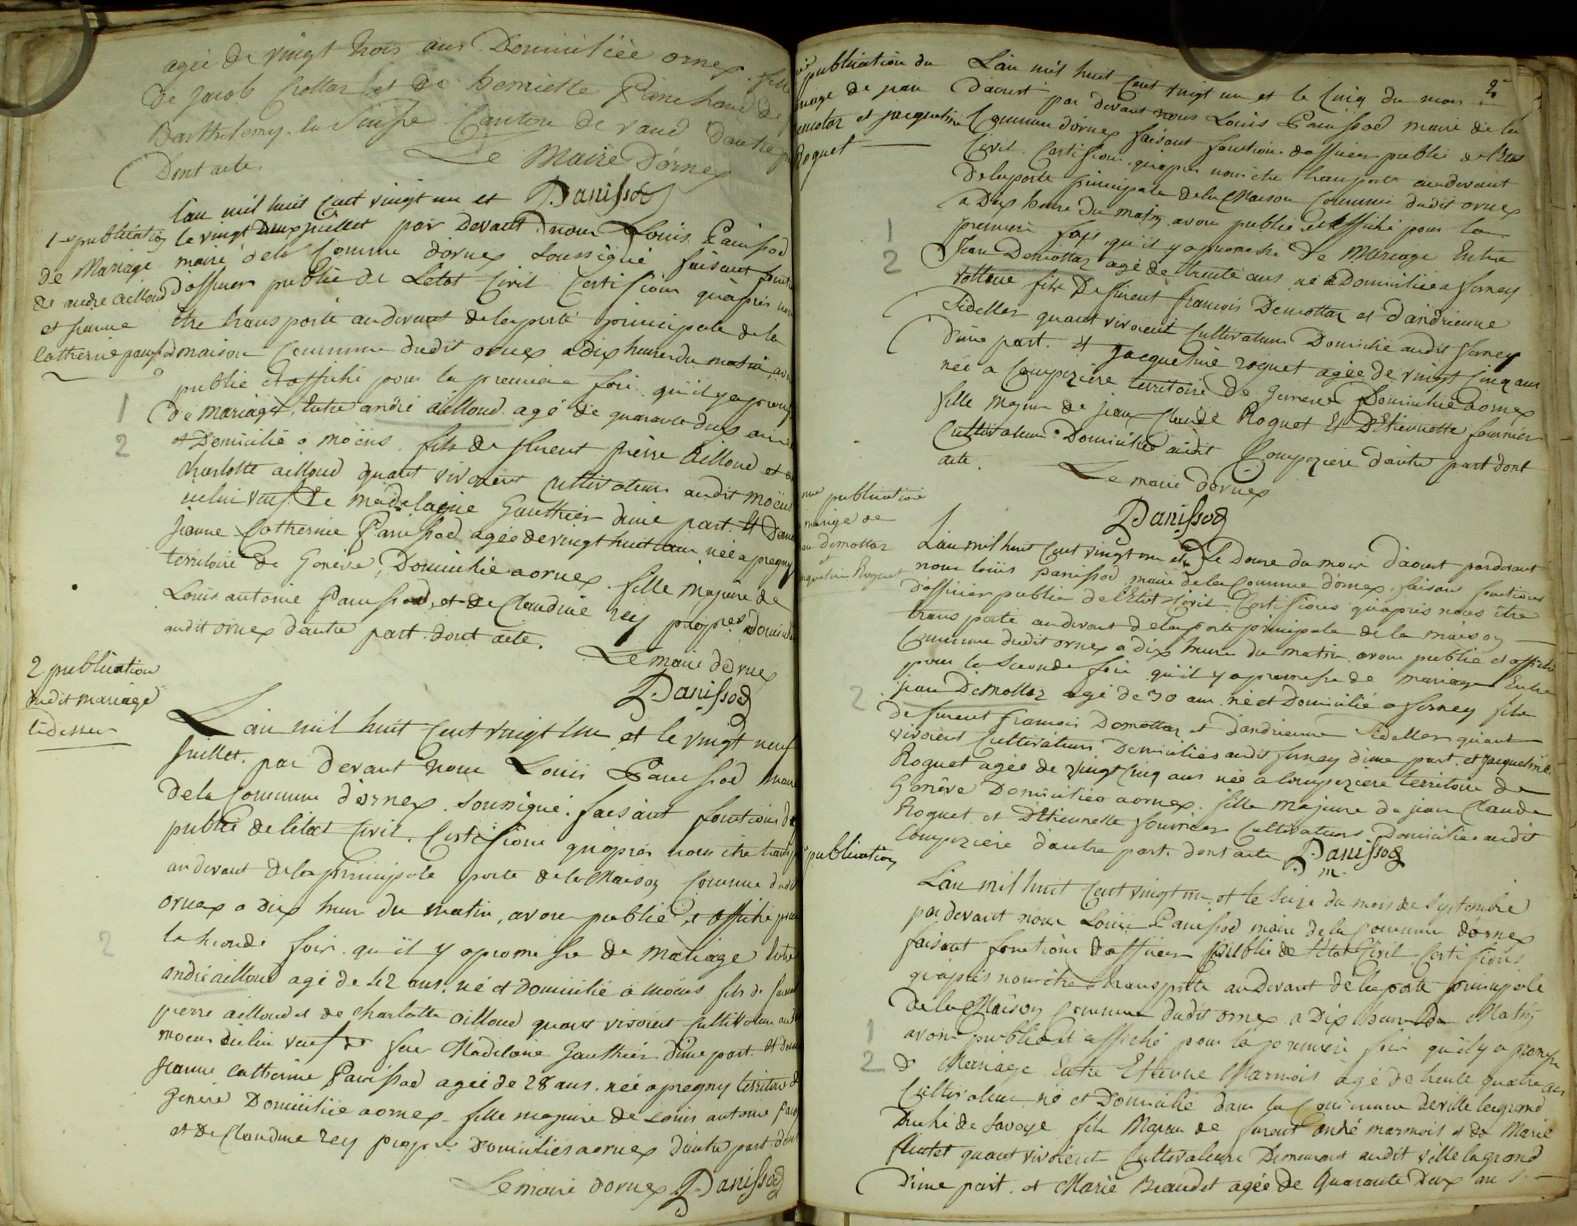 agée de vingt trois ans Domiciliée ornex fille
De Jacob Crottaz et de henriette
Barthelemy la Suisse Canton de vaud d'autre
Dont acte.
Le Maire D'ornex
Panissod
1ere publication
De Mariage
de andré ailloud
et jeanne
Catherine panissod
l'an mil huit Cent vingt un et
le vingt Deux juillet par Devant nous Louis Panissod
maire dela Commune d'ornex Soussigné faisant
d'officier public de L'etat Civil Certifions qu'après nous
être transporté audevant delaporte principale de la
maison Commune dudit ornex a dix heures du matin, avons
publié et affiché pour la premiere fois qu'il y a promesse
1
De mariage, Entre andré ailloud agé de quarante deux ans
2
et Domicilié a moëns fils de feurent pierre Ailloud et de
charlotte ailloud quant vivoient Cultivateurs audit moëns
icelui veuf De madelaine Gauthier d'une part. Et Dame
jeanne Catherine Panissod agée de vingt huit ans née a pregny
territoire de Genève, Domiciliée a ornex fille majeure de
Louis antoine Panissod, et de Claudine rey propres Domiciliés
audit ornex d'autre part. dont acte.
Le maire d'ornex
Panissod
2 publication
dudit mariage
Cidessus
L'an mil huit Cent vingt Un et le vingt neuf
juillet. par Devant Nous Louis Panissod maire
Dela Commune d'ornex. Soussigné. faisant fonctions d'off
public de l'état Civil. Certifions qu'après nous être transp
audevant dela principale porte de la Maison Commune dudit
ornex a dix heures du matin, avons publié et affiché pour
2
la seconde fois. qu'il y a promesse de mariage Entre
andré ailloud agé de 42 ans, né et Domicilié a Moens fils de feurent
pierre ailloud et de charlotte ailloud quant vivoient Cultivateurs audit
moens icelui veuf de feue Madelaine Gauthier d'une part. Et dame
Jeanne Catherine Panissod agée de 28 ans. née a pregny territoire de
Genève Domiciliée a ornex. fille majeure de Louis antoine Panis
et de Claudine rey propres Domiciliés a ornex d'autre part dont
Le maire d'ornex Panissod
publication du
mariage de jean
Demottaz et jacqueline
Roguet
L'an mil huit Cent vingt un et le Cinq du mois
2
D'aoust par devant nous Louis Panissod maire de la
Commune d'ornex faisant fonctions d'officier public de l'Etat
Civil. Certifions qu'après nous être transporté audevant
De laporte principale de la Maison Commune dudit ornex
a Dix heures Du matin, avons publié et affiché pour la
1
premiere fois qu'il y a promesse De mariage Entre
2
Jean Demottaz agé de trente ans né et Domicilié a ferney
voltaire fils De feurent francois Demottaz et d'andrienne
Sidellet quant vivoient Cultivateurs Domicilié audit ferney
D'une part. Et Jacqueline roguet agée de vingt Cinq ans
née a Compeziere territoire De Geneve Domiciliée a ornex
fille Majeure de jean Claude Roguet Et D'Etiennette fournier
Cultivateurs Domiciliés audit Compeziere d'autre part dont
acte.
Le maire d'ornex
Panissod
publication
mariage de
jean Demottaz
et
jacqueline Roguet
L'an mil huit Cent vingt un et le Douze du mois d'aoust pardevant
nous louis panissod, maire dela Commune d'ornex, faisant fonctions
d'officier public de l'Etat Civil. Certifions qu'après nous être
transporté audevant delaporte principale de la maison
Commune dudit ornex a dix heures du matin avons publié et affiché
pour la Seconde fois qu'il y a promesse de mariage Entre
2
jean Demottaz agé de 30 ans, né et Domicilié a ferney fils
de feurent francois Demottaz et d'andrienne Sidellet quant
vivoient Cultivateurs Domiciliés audit ferney d'une part, et jacqueline
Roguet agée de vingt Cinq ans née a Compeziere territoire de
Genève Domiciliée a ornex. fille Majeure de jean Claude
Roguet et D'Etiennette fournier Cultivateurs Domiciliés audit
Compeziere d'autre part. dont acte Panissod
m.
publication
L'an mil huit Cent vingt un et le Seize du mois de Septembre
par devant nous Louis Panissod maire de la Commune d'ornex
faisant fonctions d'officier Public de l'état Civil Certifions
qu'après nous être transporté audevant de la porte principale
De la Maison Commune dudit ornex a Dix heures du Matin
1
avons publié et affiché pour la premiere fois qu'il y a promesse
2
De Mariage Entre Etienne Marmois agé de trente quatre ans
Cultivateur né et Domicilié dans la Commune de ville le grand
Duché de Savoye fils Majeur de feurent andré marmois et de Marie
quant vivoient Cultivateurs Demeurant audit ville le grand
D'une part. et Marie Beaudet agée De Quarante Deux ans